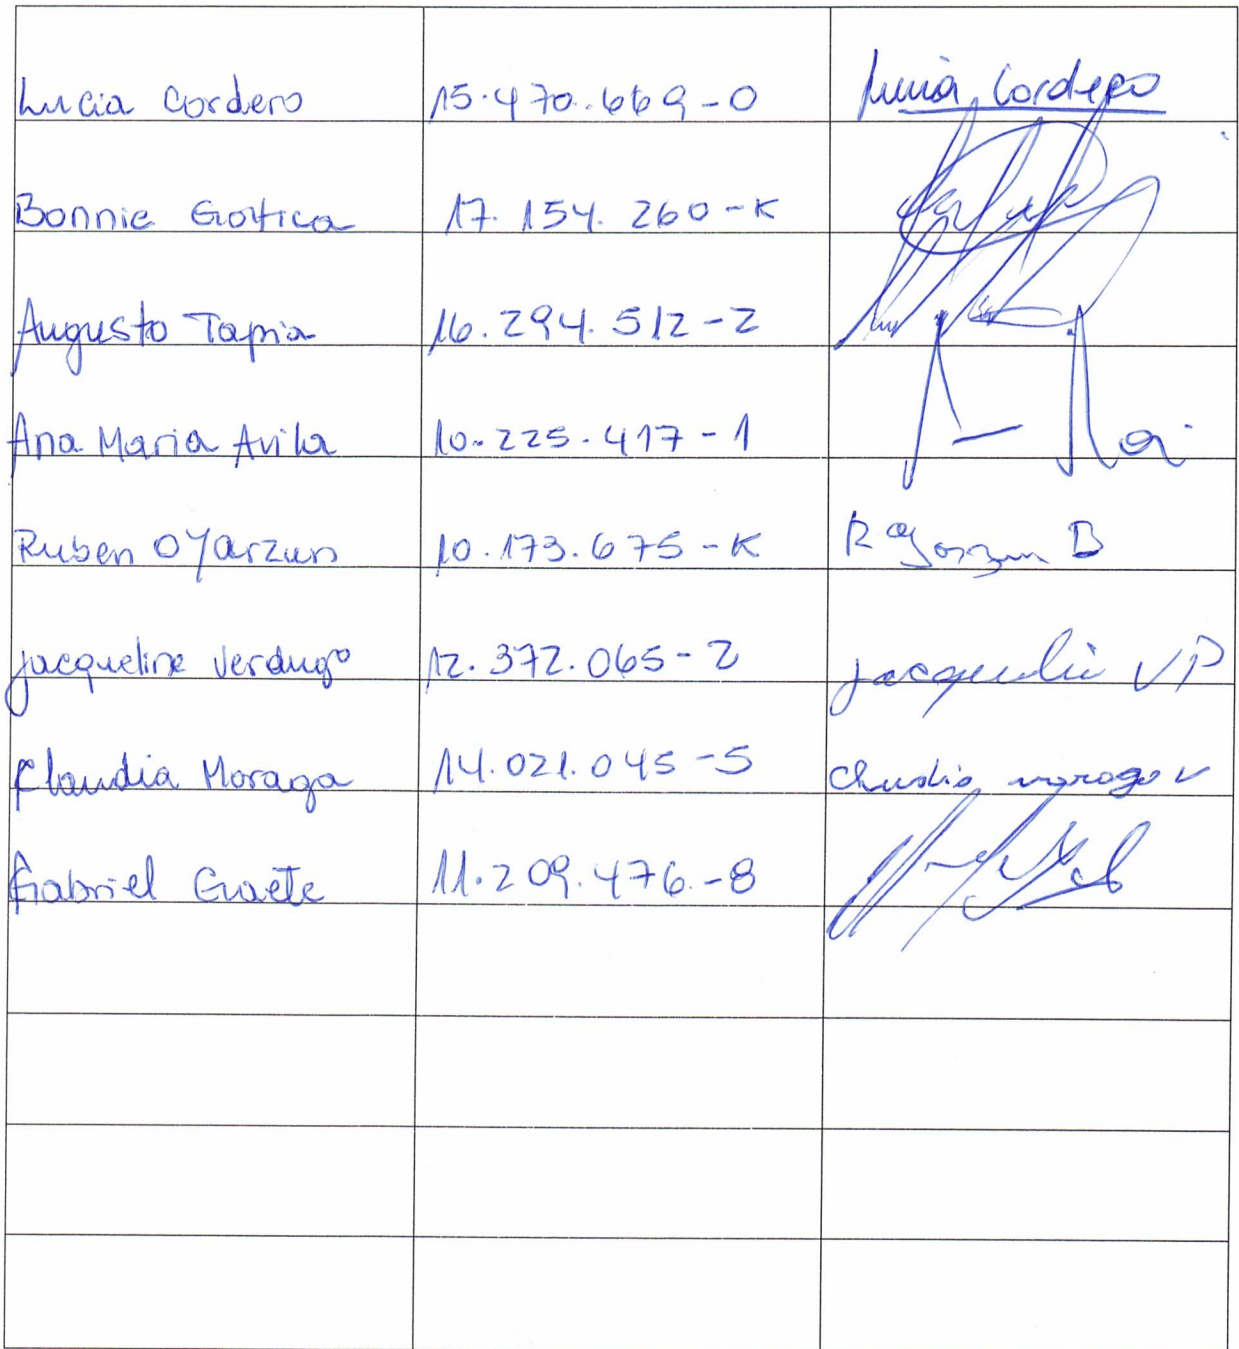 Lucia Cordero 15.470.669-0 Lucia Cordero
Bonnie 17.154.260-K
Augusto Tapia 16.294.512-2
Ana Maria Avila 10.225.417-1
Ruben Oyarzun 10.173.675-K R Oyarzun B
Jacqueline Verdugo 12.372.065-2 Jacqueline VP
Claudia Moraga 14.021.045-5 Claudia Moraga V
Gabriel Gaete 11.209.476-8